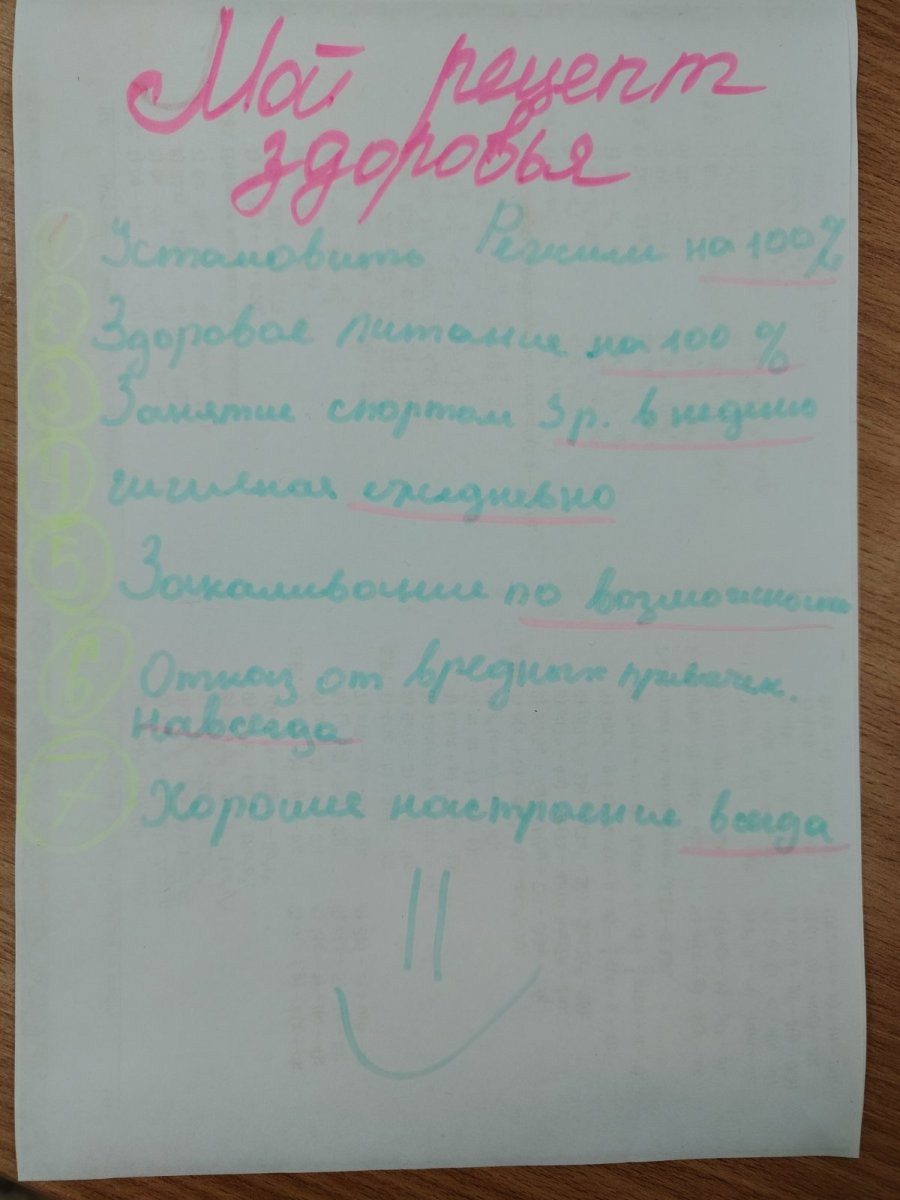 Мой рецепт
здоровья
1 Установить Режим на 100%
2 Здоровое питание на 100 %
3 Занятие спортом 3 р. в неделю
4 гигиеная ежедневно
5 Закаливание по возможности
6 Отказ от вредных привычек.
навсегда
7 Хорошие настроение всегда